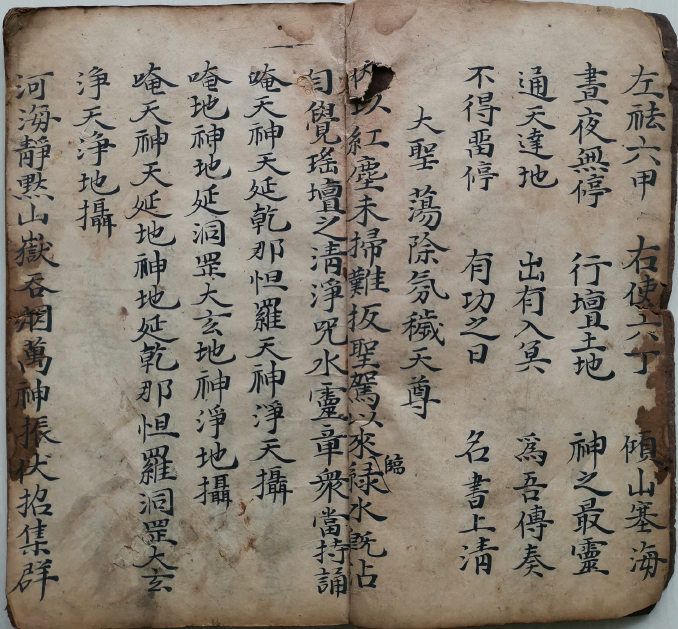 左祛六甲 右使六丁 傾山塞海
晝夜無停 行壇土地 神之最靈
通天達地 出有入冥 為吾傳奏
不得畱停 有功之日 名書上清
大聖 蕩除氛穢天尊
以紅塵未掃難扳聖駕以來臨緑水既沾
自覺瑤壇之清淨咒水靈章衆當持誦
唵天神天延乾那怛羅天神淨天攝
唵地神地延洞罡大玄地神淨地攝
唵天神天延地神地延乾那怛羅洞罡大玄
淨天淨地攝
河海靜黙山嶽吞烟萬神振伏招集群